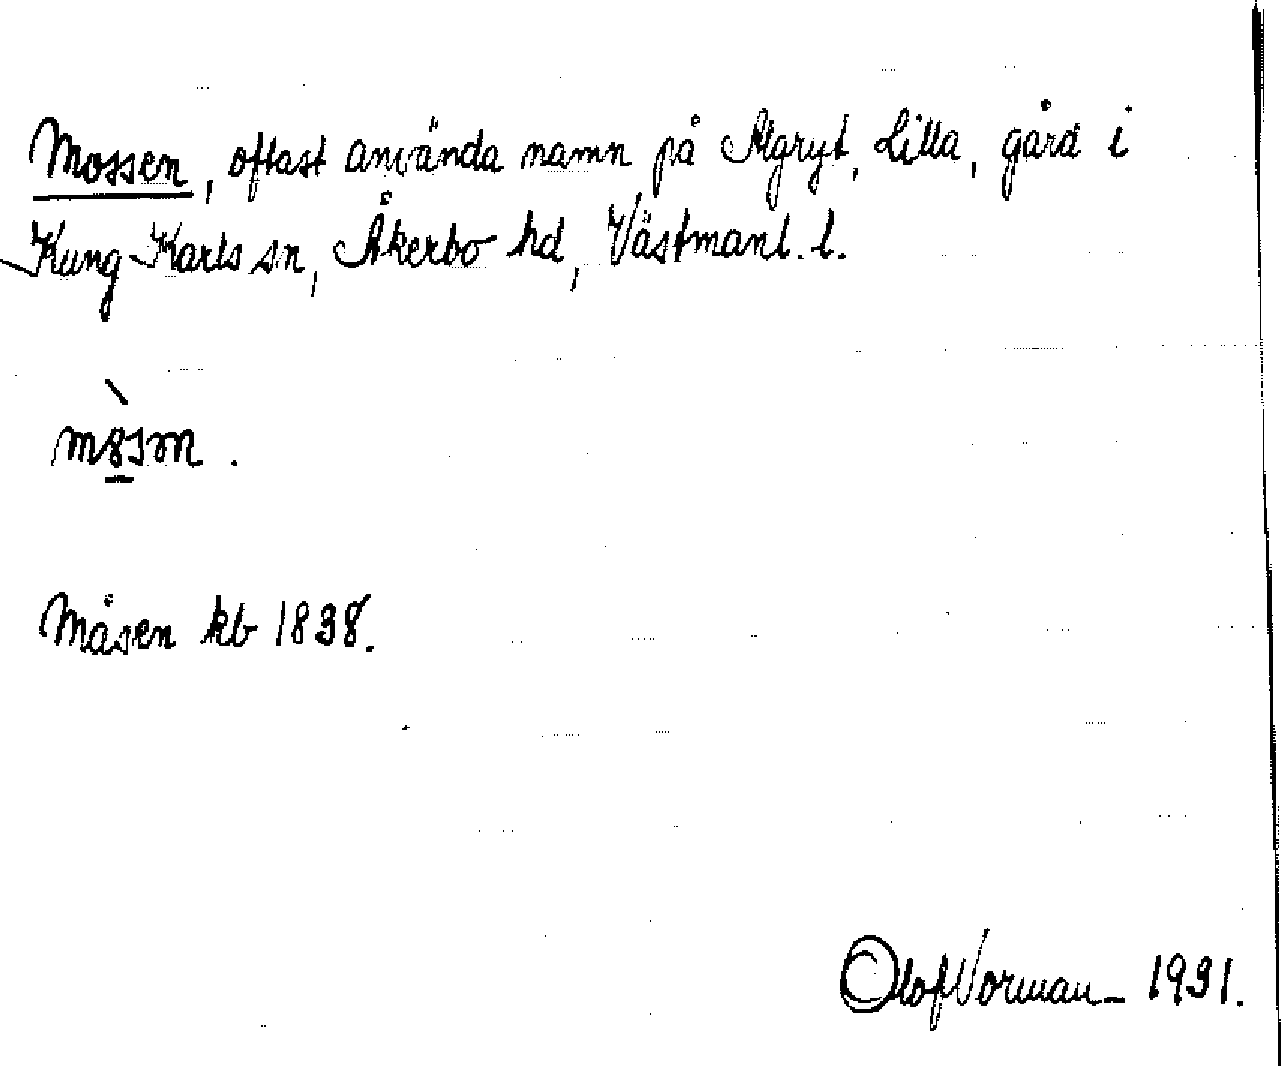 Mossen, oftast använda namn på Algryt, Lilla, gård i
Kung Karls sn, Åkerbo hd, Västmanl. l.
Måsen kb 1838.
Olof Vorman 1931.